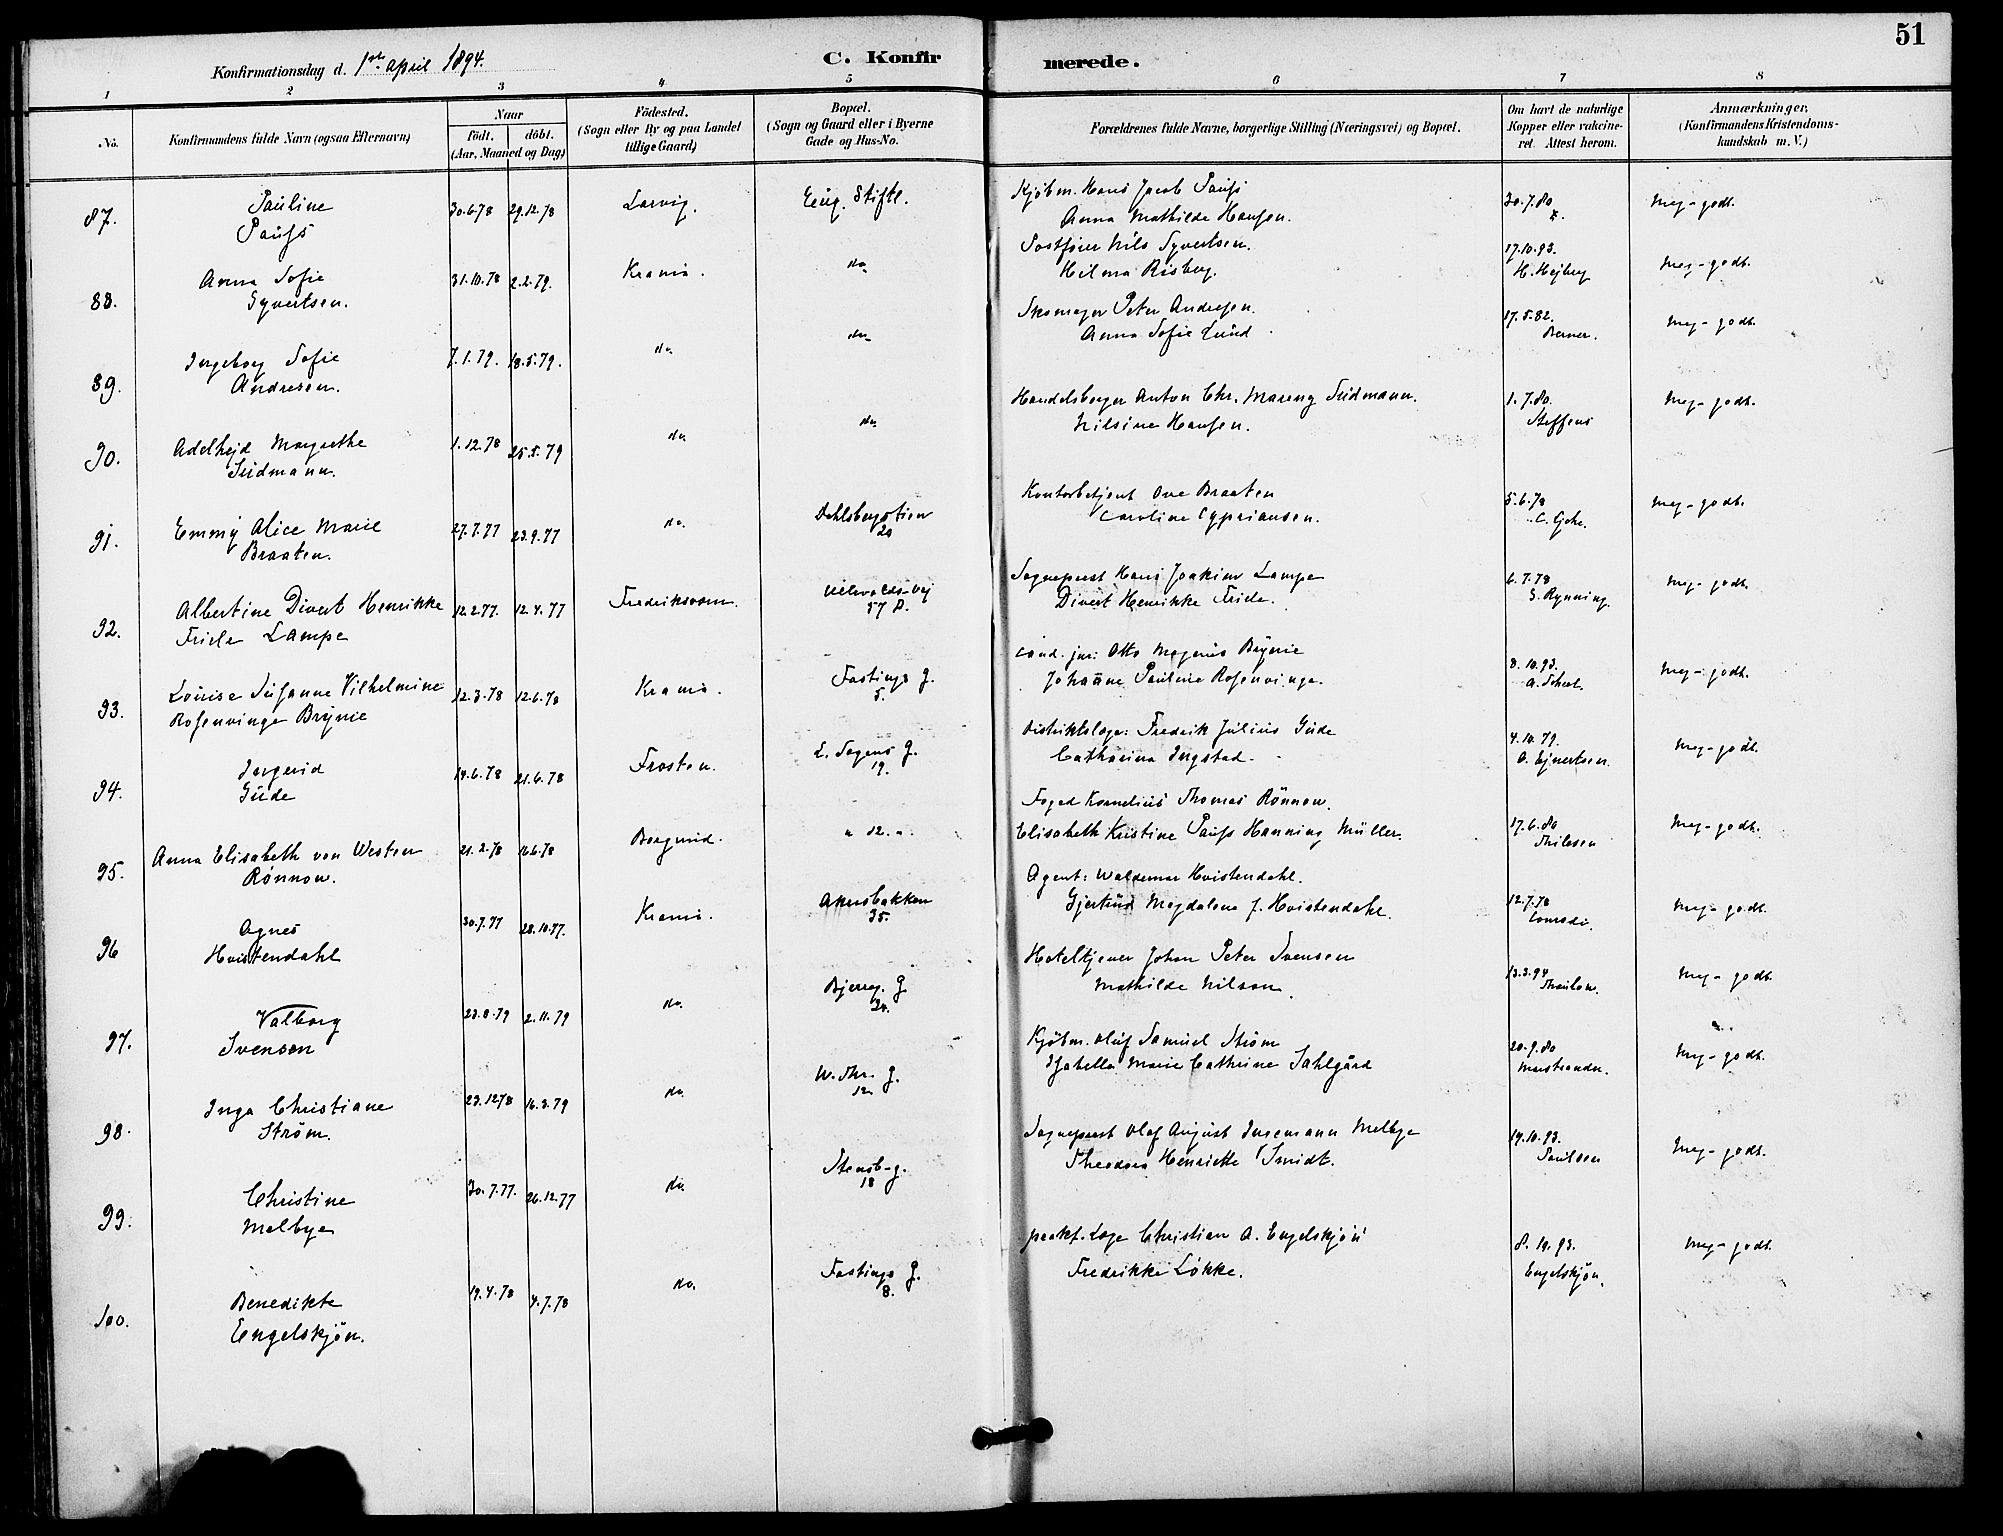 51
Konfirmationsdag d. 1ste april 1894.
C. Konfirmerede.
1 2 3 4 5 6 7 8
No.
Konfirmandens fulde Navn (ogsaa Efternavn)
Naar
födt. döbt.
(Aar, Maaned og Dag)
Födested.
(Sogn eller By og paa Landet
tillige Gaard)
Bopæl.
(Sogn og Gaard eller i Byerne
Gade og Hus-No.
Forældrenes fulde Navne, borgerlige Stilling (Næringsvei) og Bopæl.
Om havt de naturlige
Kopper eller vakcine-
ret. Attest herom.
Anmærkninger.
(Konfirmandens Kristendoms-
kundskab m. V.)
87. Pauline
Pauss
30.6.78 29.12.78 Larvig. Eug. Stiftl.
Kjöbm. Hans Jacob Pauss
Anna Mathilde Hansen.
30.7.80
meg-godt.
88. Anna Sofie
Syvertsen.
31.10.78 2.2.79. Krania. do
Postfører Nils Syvertsen.
Hilma Risberg.
17.10.93.
H. Hejberg
meg-godt.
89. Ingeborg Sofie
Andresen.
7.1.79. 18.5.79. do. do
Skomager Peter Andresen.
Anna Sofie Lund
17.5.82.
Berner.
meg-godt.
90. Adelhejd Margrethe
Südmann.
1.12.78 25.5.79 do do
Handelsborger Anton Chr. Mareng Südmann.
Nilsine Hansen.
1.7.80.
Steffens
meg-godt.
91. Emmy Alice Marie
Braaten.
27.7.77 23.9.77 do. Dahlsbergstien
20
Kontorbetjent Ove Braaten
Caroline Cypriansen.
5.6.78
meg-godt.
92. Albertine Divert Henrikke
Friele Lampe
12.2.77. 12.4.77 Fredriksværn. Ullevoldsvej
57
Sognepræst Hans Joakim Lampe
Divert Henrikke Friele.
6.7.78
S. Rynning.
meg-godt.
93. Louise Susanne Vilhelmine
Rosenvinge Brynie
12.3.78 12.6.78 Krania. Fastings g.
5.
cand. jur: Otto Magnus Brynie
Johanne Pauline Rosenvinge.
8.10.93.
meg-godt.
94. Ingerid
Gude
14.6.78 21.6.78 Frosten. L. Sagens g.
19.
Distriktslæge: Fredrik Julius Gude
Catharina Ingstad.
4.10.79.
O. Ejnertsen.
meg-godt.
95. Anna Elisabeth von Westen
Rönnow.
21.2.78 16.6.78 Borgund. " 12. "
Foged Kornelius Thomas Rönnow.
Elisabeth Kristine Pauss Hanning Müller.
17.6.80
Thilesen
meg-godt.
96 Agnes
Hvistendahl
30.7.77 28.10.77. Krania. Akersbakken
35.
Agent: Waldemar Hvistendahl.
Gjertrud Magdalena J. Hvistendahl.
12.7.78
Conradi.
meg-godt.
97. Valborg
Svensen
23.8.79 2.11.79 do. Bjerreg. g
24.
Hoteltjener Johan Peter Svensen
Mathilde Nilsen
13.3.94
Thaulow.
meg-godt.
98. Inga Christiane
Ström.
23.12.78 16.3.79 do W. Thr. g.
12
Kjöbm. Oluf Samuel Ström
Isabella Marie Cathrine Sahlgård
20.9.80
Marstrander.
meg-godt.
99. Christine
Melbye
30.7.77. 26.12.77 do. Stensb-g.
18
Sognepræst Olaf August Ingemann Melbye
Theodora Henriette Smidt.
19.10.93.
Paulsen
meg-godt.
100. Benedikte
Engelskjön.
19.4.78 4.7.78 do. Fastings g.
8.
prakt. Læge Christian A. Engelskjön
Fredrikke Lökke.
8.10.93.
Engelskjön.
meg-godt.